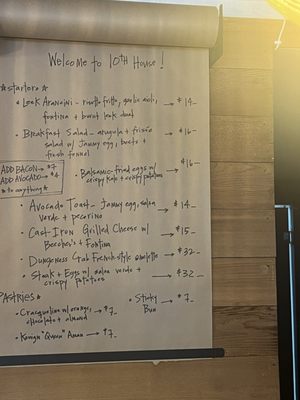 Welcome to 10TH House!
★starters★
• Leek Arancini - risotto fritto, garlic aioli, → $14-
fontina + burnt leek dust
• Breakfast Salad - arugula + frisée → $16-
salad w/ Jammy egg, beets +
fresh fennel
ADD BACON → $7
ADD AVOCADO → $4
*to anything*
• Balsamic-fried eggs w/ → $16-
crispy kale + crispy potatoes
• Avocado Toast - Jammy egg, salsa → $14-
verde + pecorino
• Cast-Iron Grilled Cheese w/ → $15-
Beecher's + Fontina
• Dungeness Crab French style omelette → $32-
• Steak + Eggs w/ salsa verde + → $32-
crispy potatoes
PASTRIES★
• Cracqueline w/ orange, → $7-
chocolate + almond
• Sticky → $7-
Bun
• Kouign "Queen" Aman → $7-